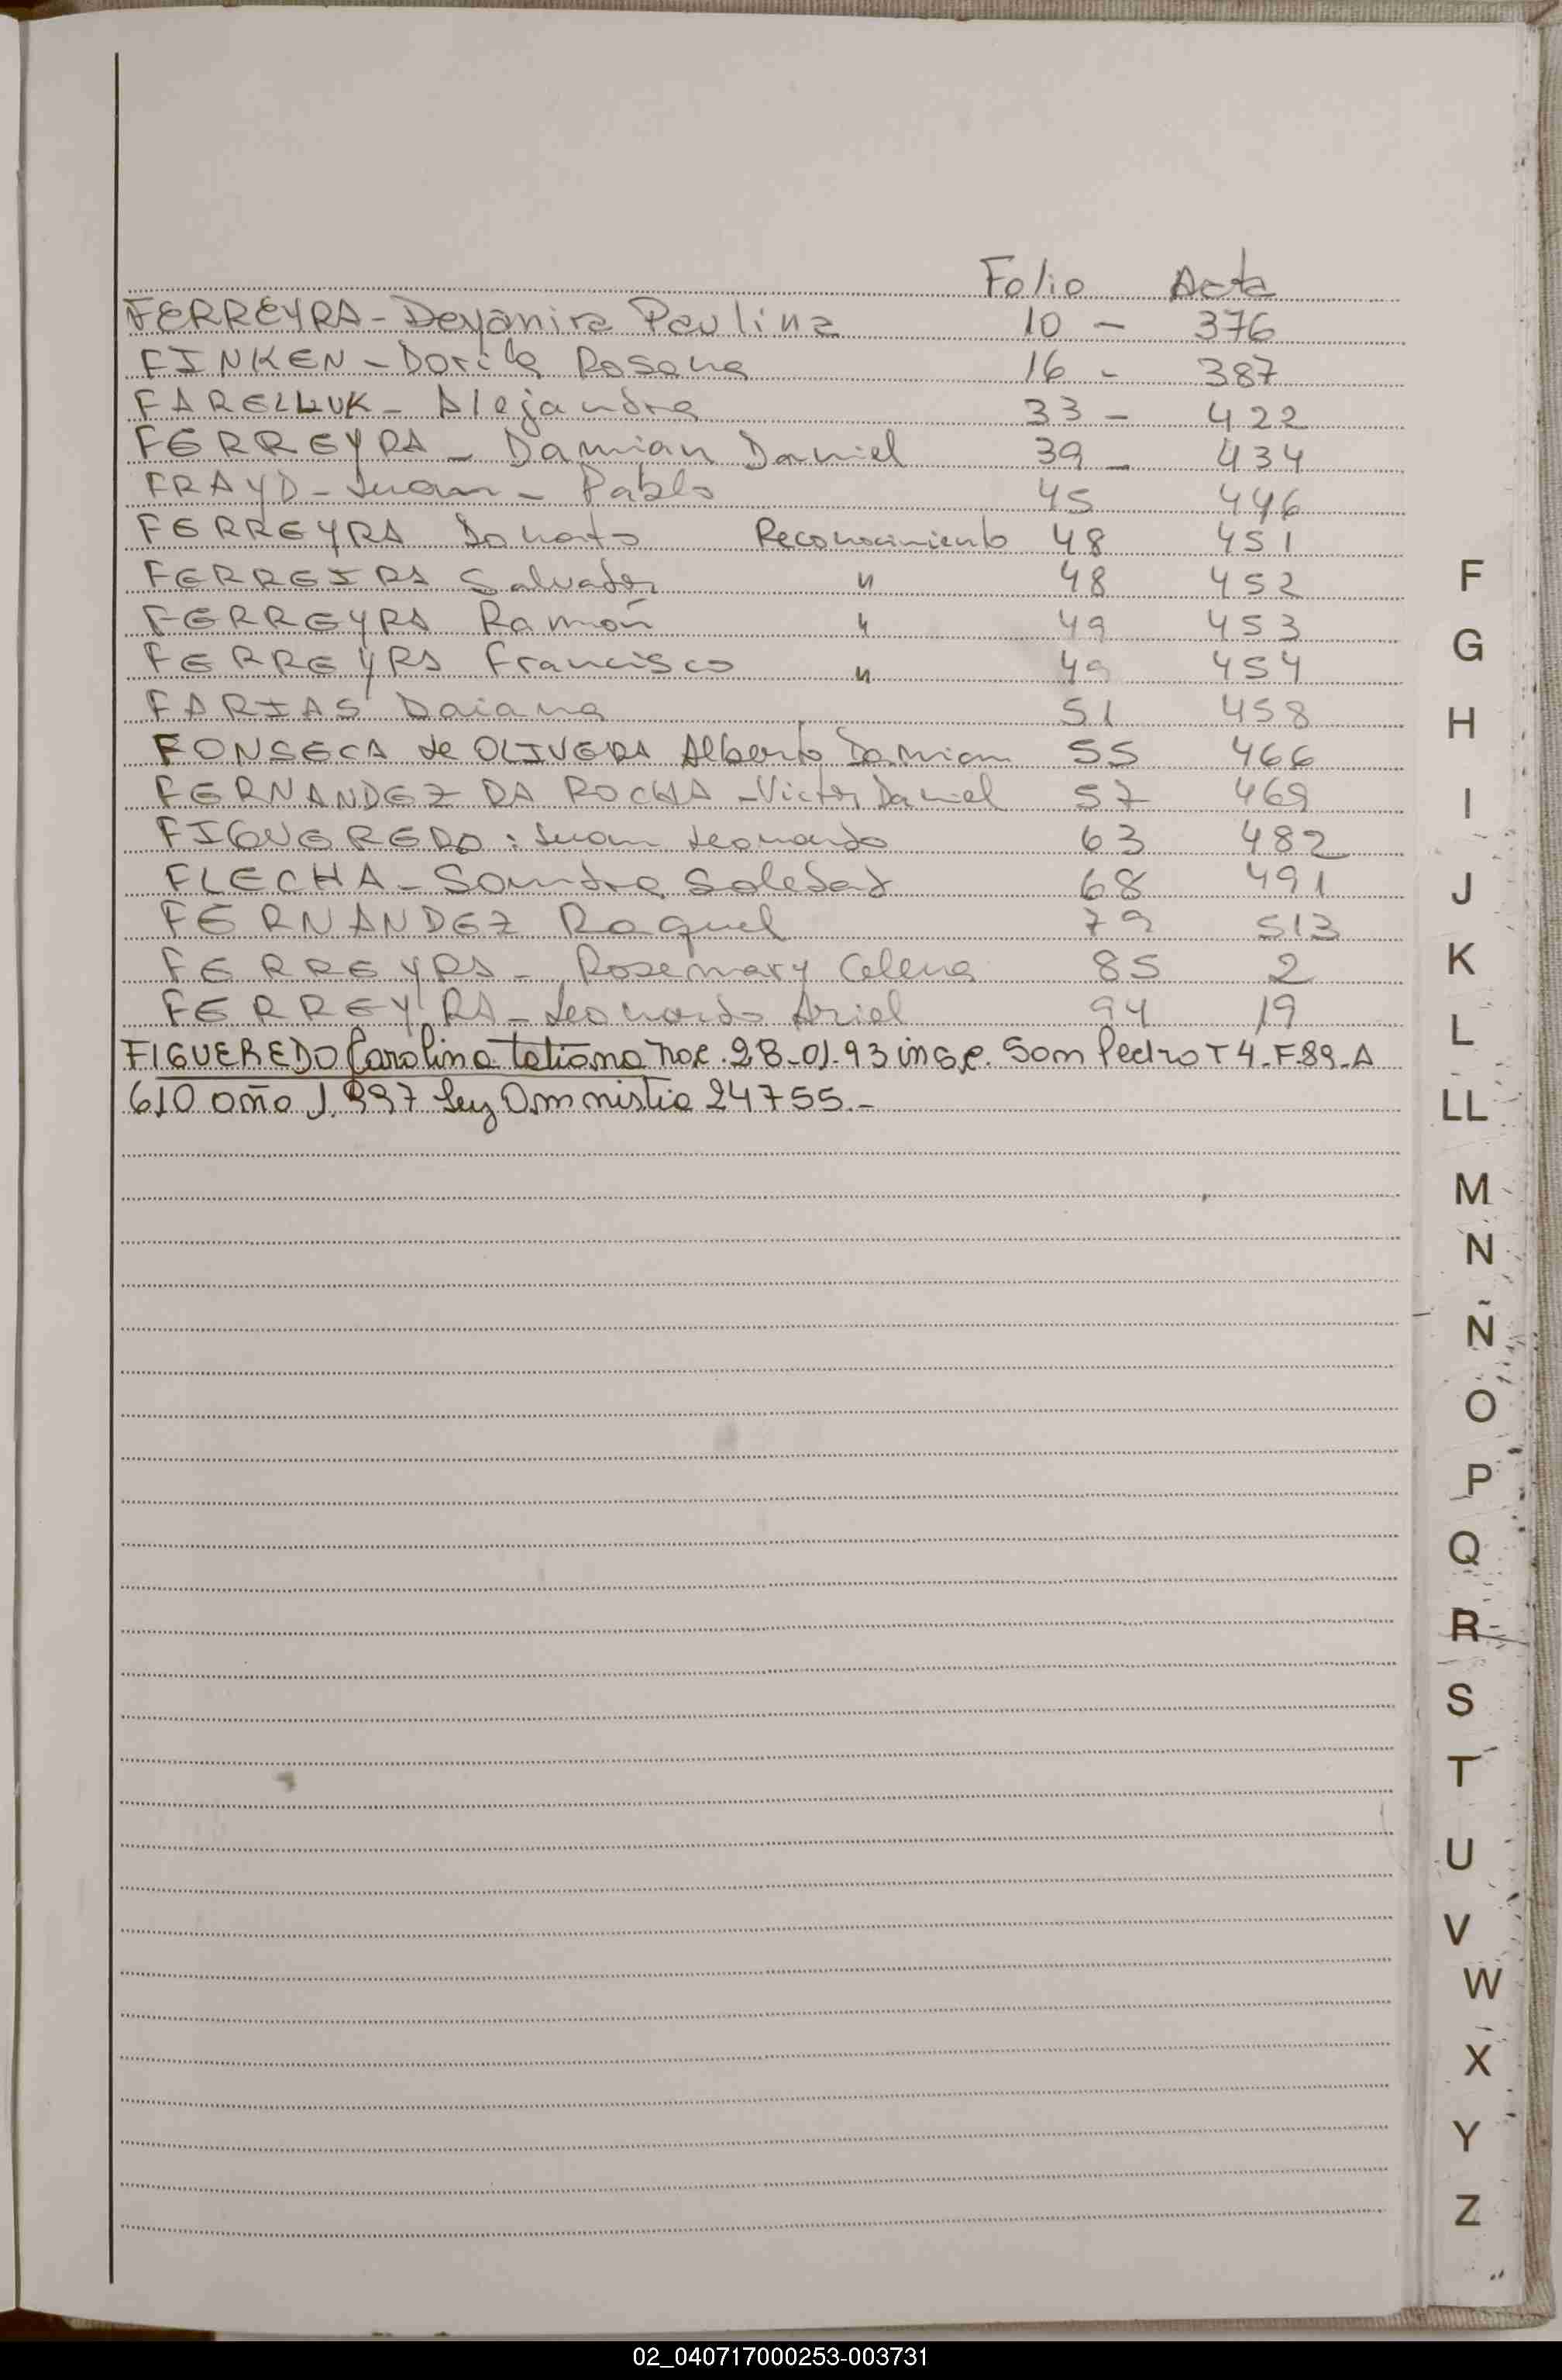 Folio Acta
FERREYRA - Deyanira Paulina 10 - 376
FINKEN - Dorila Rosana 16 - 387
FARELLUK - Alejandra 33 - 422
FERREYRA - Damian Daniel 39 - 434
FRAYD - Juan - Pablo 45 446
FERREYRA Donato Reconocimiento 48 451
FERREIRA Salvador " 48 452
FERREYRA Ramón " 49 453
FERREYRA Francisco " 49 454
FARIAS Daiana 51 458
FONSECA de OLIVERA Alberto Damian 55 466
FERNANDEZ DA ROCHA - Victor Daniel 57 469
FIGUEREDO: Juan Leonardo 63 482
FLECHA - Sandra Soledad 68 491
FERNANDEZ Raquel 79 513
FERREYRA - Rosemary Celena 85 2
FERREYRA - Leonardo Ariel 94 19
FIGUEREDO Carolina Tatiana nac. 28-01-93 San Pedro T 4-F.89-A
610 año 1.997 Ley Amnistia 24755.-
F
G
H
I
J
K
L
LL
M
N
Ñ
O
P
Q
R
S
T
U
V
W
X
Y
Z
02_040717000253-003731